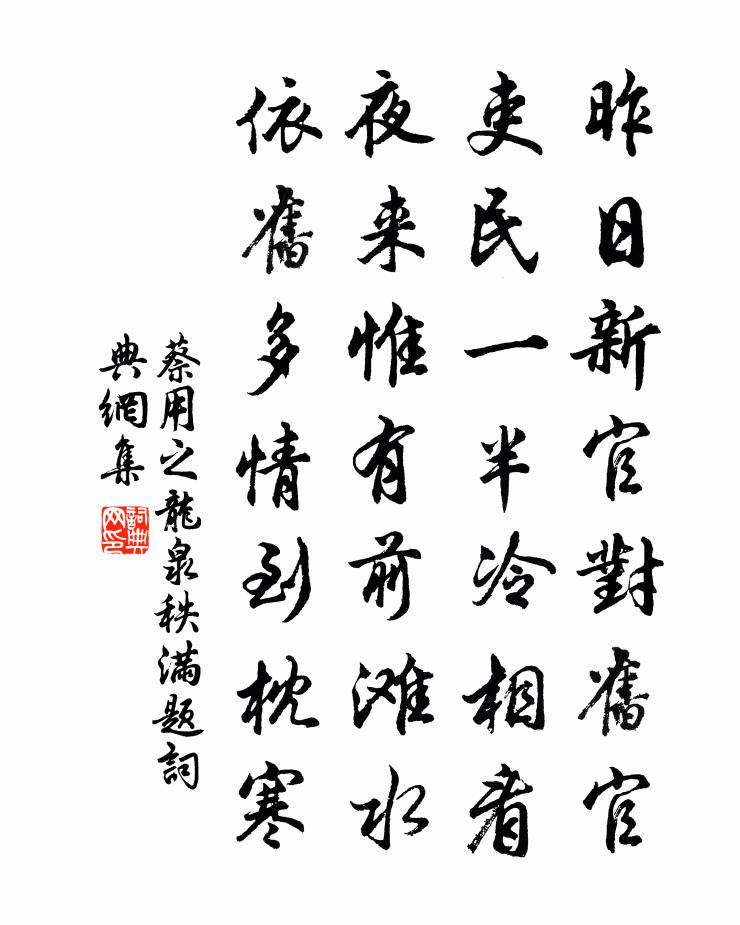 昨日新官對舊官
吏民一半冷相看
夜来惟有前滩水
依舊多情到枕寒
蔡用之龍泉秩滿題詞
典網集
詞典
网印